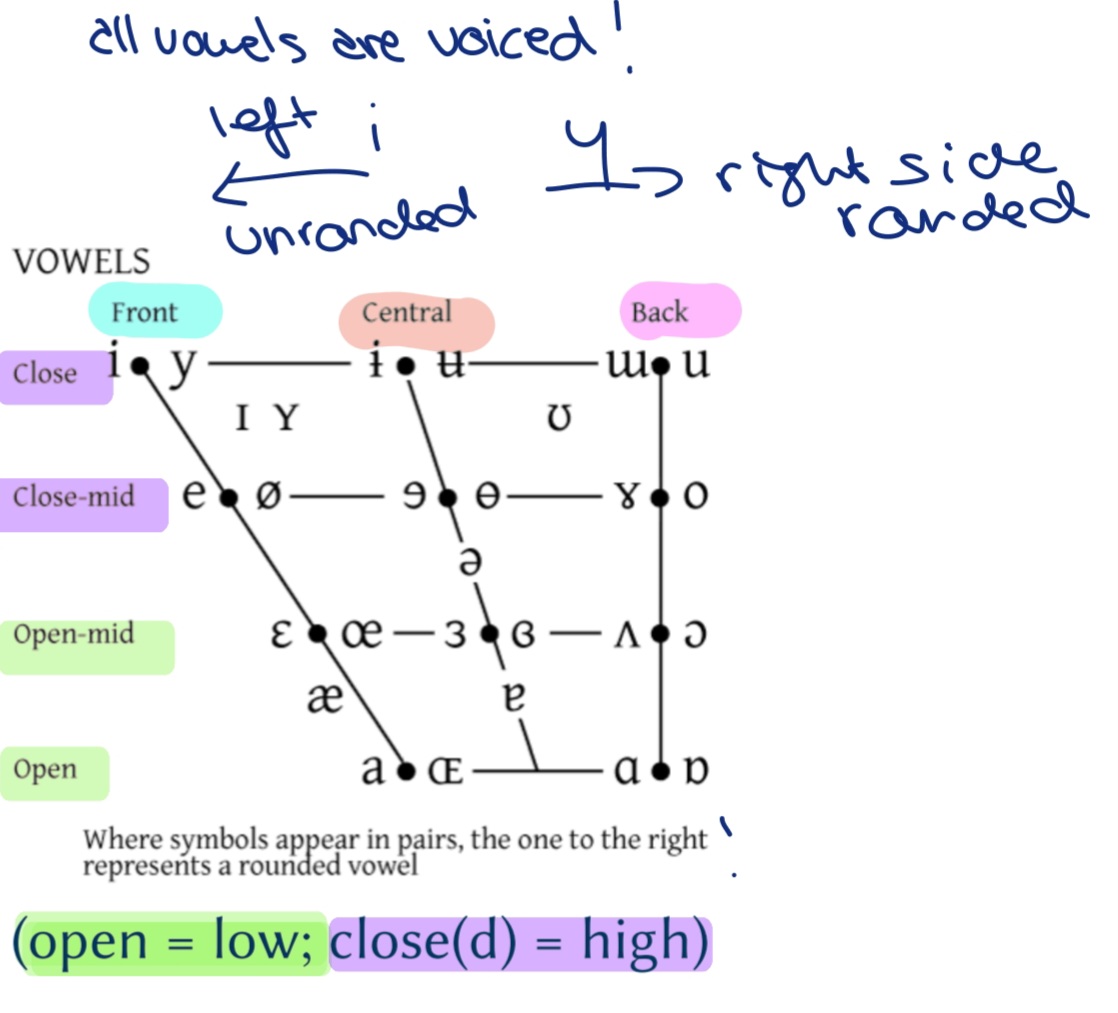 all vowels are voiced!
left i y right side
unranded randed
VOWELS
Front Central Back
Close i y ɨ ʉ ɯ u
ɪ ʏ ʊ
Close-mid e ø ɘ ɵ ɤ o
ə
Open-mid ɛ œ ɜ ɞ ʌ ɔ
æ ɐ
Open a ɶ ɑ ɒ
Where symbols appear in pairs, the one to the right !
represents a rounded vowel
(open = low; close(d) = high)